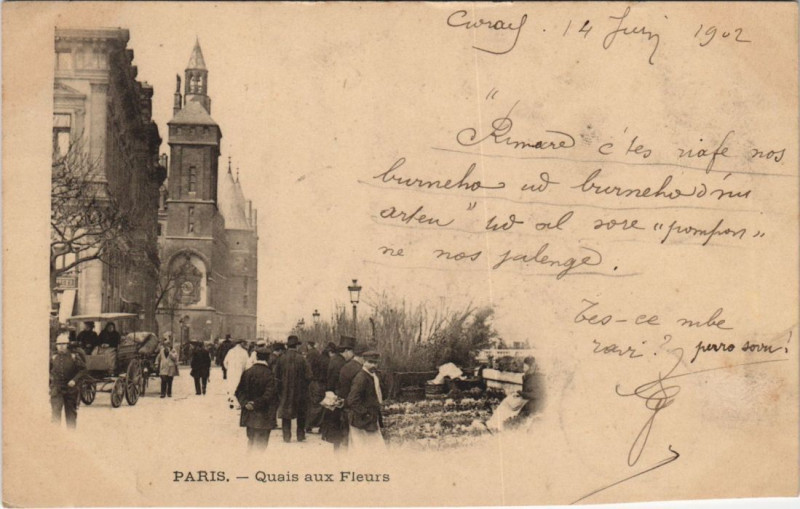 14 Juin 1902
"
Rimare c'tes riafe nos
burneho ud burneho d'nu
arteu" ud al sore "pompon"
ne nos jalenge.
Tes-ce mbe
ravi? perro sovu!
PARIS. — Quais aux Fleurs